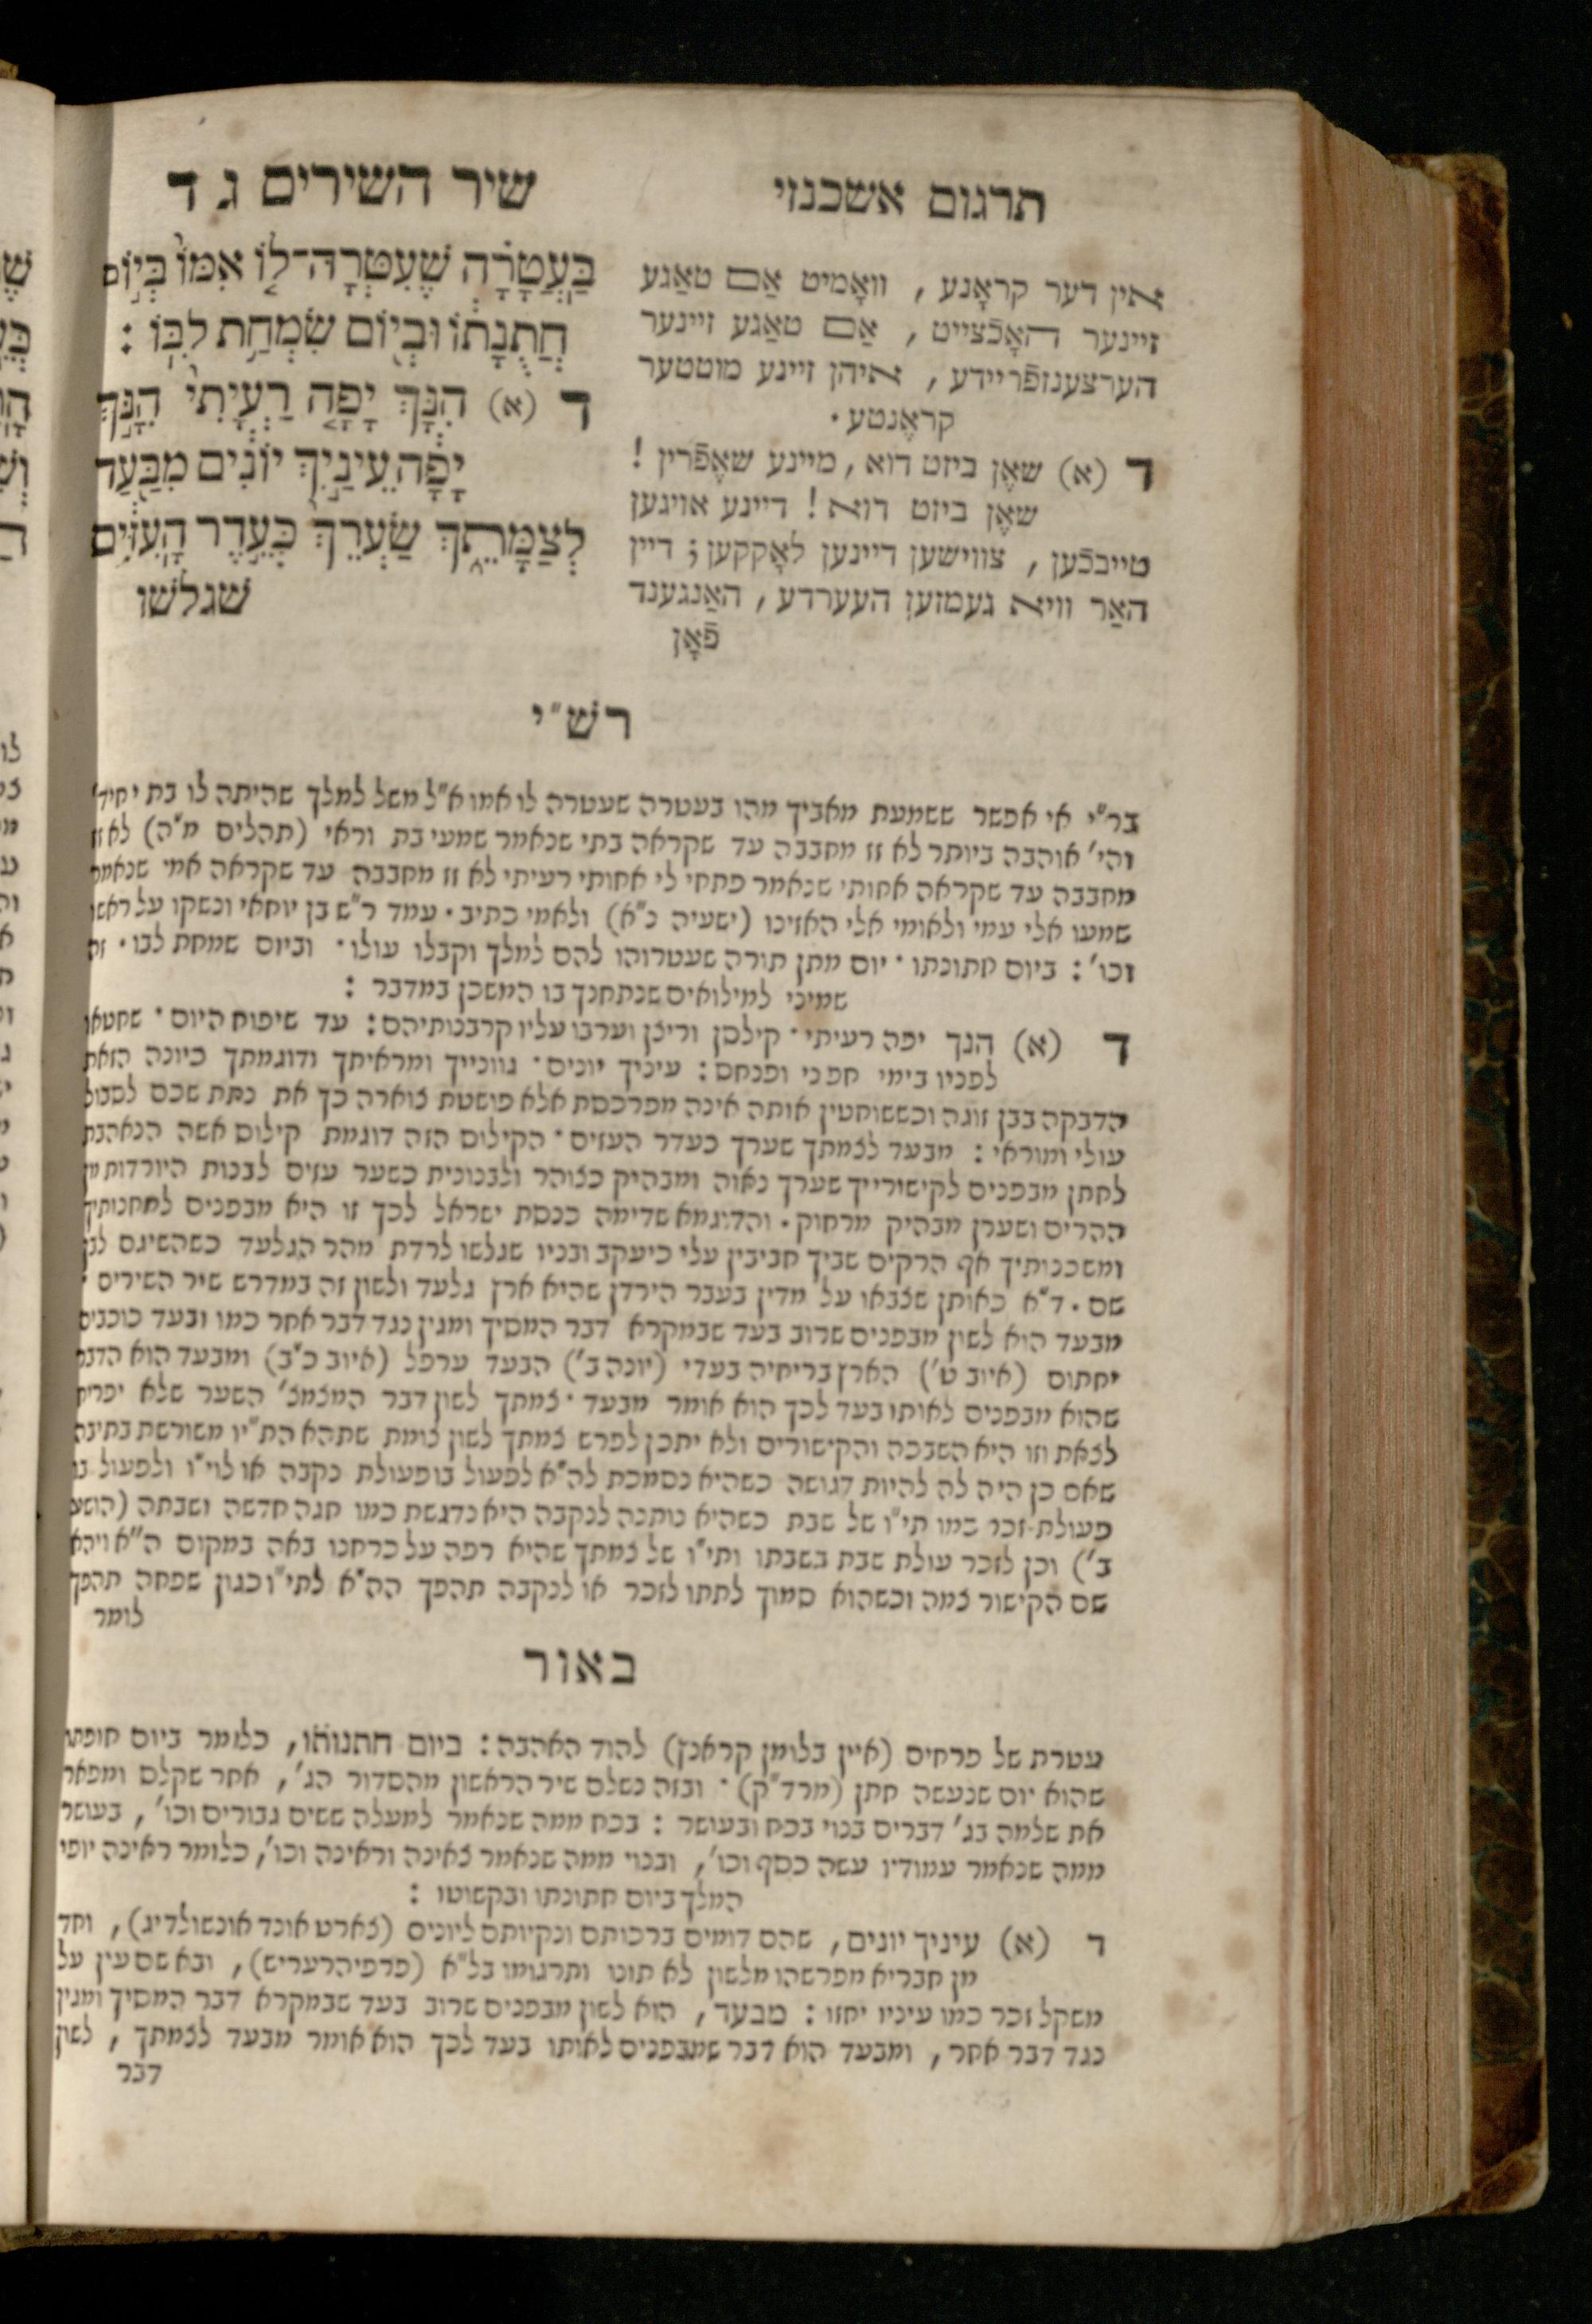 תרגום אשכנזי
שיר השירים ג ד
בַּעֲטָרָה שֶׁעִטְּרָה־לּוֹ אִמּוֹ בְּיוֹם
חֲתֻנָּתוֹ וּבְיוֹם שִׂמְחַת לִבּוֹ :
ד (א) הִנָּךְ יָפָה רַעְיָתִי הִנָּךְ
יָפָה עֵינַיִךְ יוֹנִים מִבַּעַד
לְצַמָּתֵךְ שַׂעְרֵךְ כְּעֵדֶר הָעִזִּים
שגלשו
אין דער קראָנע , וואָמיט אַם טאַגע
זיינער האָכֿצייט , אַם טאַגע זיינער
הערצענזפֿריידע , איהן זיינע מוטטער
קראָנטע .
ד (א) שאָן ביזט דוא , מיינע שאָפֿרין !
שאָן ביזט דוא ! דיינע אויגען
טייבכֿען , צווישען דיינען לאָקקען ; דיין
האַר וויא געמזען העערדע , האַנגענד
פֿאָן
רש״י
בר״י אי אפשר ששמעת מאביך מהו בעטרה שעטרה לו אמו א״ל משל למלך שהיתה לו בת יחיד׳
והי׳ אוהבה ביותר לא זז מחבבה עד שקראה בתי שנאמר שמעי בת וראי (תהלים מ״ה) לא זז
מחבבה עד שקראה אחותי שנאמר פתחי לי אחותי רעיתי לא זז מחבבה עד שקראה אמי שנאמר
שמעו אלי עמי ולאומי אלי האזינו (ישעיה נ״א) ולאמי כתיב . עמד ר״ש בן יוחאי ונשקו על ראשו
וכו׳ : ביום חתונתו . יום מתן תורה שעטרוהו להם למלך וקבלו עולו . וביום שמחת לבו . זה
שמיני למילואים שנתחנך בו המשכן במדבר :
ד (א) הנך יפה רעיתי . קילסן וריצן וערבו עליו קרבנותיהם : עד שיפוח היום . שחטאו
לפניו בימי חפני ופנחס : עיניך יונים . גווניך ומראיתך ודוגמתך כיונה הזאת
הדבקה בבן זוגה וכששוחטין אותה אינה מפרכסת אלא פושטת צוארה כך את נתת שכם לסבול
עולי ומוראי : מבעד לצמתך שערך כעדר העזים . הקילוס הזה דוגמת קילוס אשה הנאהבת
לחתן מבפנים לקישורייך שערך נאוה ומבהיק כצוהר ולבנונית כשער עזים לבנות היורדות מן
ההרים ושערן מבהיק מרחוק . והדוגמא שדימה כנסת ישראל לכך זו היא מבפנים למחנותיך
ומשכנותיך אף הרקים שביך חביבין עלי כיעקב ובניו שגלשו לרדת מהר הגלעד כשהשיגם לבן
שם . ד״א כאותן שצבאו על מדין בעבר הירדן שהיא ארץ גלעד ולשון זה במדרש שיר השירים .
מבעד הוא לשון מבפנים שרוב בעד שבמקרא דבר המסיך ומגין נגד דבר אחר כמו ובעד כוכבים
יחתום (איוב ט׳) הארץ בריחיה בעדי (יונה ב׳) הבעד ערפל (איוב כ״ב) ומבעד הוא הדבר
שהוא מבפנים לאותו בעד לכך הוא אומר מבעד . צמתך לשון דבר המצמצ׳ השער שלא יפריח
לצאת וזו היא השבכה והקישורים ולא יתכן לפרש צמתך לשון צומת שתהא הת״יו משורשת בתיבה
שאם כן היה לה להיות דגושה כשהיא נסמכת לה״א לפעול בו פעולת נקבה או לוי״ו ולפעול בו
פעולת זכר כמו תי״ו של שבת כשהיא נותנה לנקבה היא נדגשת כמו חגה חדשה ושבתה (הושע
ב׳) וכן לזכר עולת שבת בשבתו ותי״ו של צמתך שהיא רפה על כרחנו באה במקום ה״א ויהא
שם הקישור צמה וכשהוא סמוך לתתו לזכר או לנקבה תהפך הה״א לתי״ו כגון שפחה תהפך
לומר
באור
עטרת של פרחים (איין בלומן קראנץ) להוד האהבה : ביום חתנותו , כלומר ביום חופתו
שהוא יום שנעשה חתן (מרד״ק) . ובזה נשלם שיר הראשון מהסדור הג׳ , אחר שקלס ומפאר
את שלמה בג׳ דברים בנוי בכח ובעושר : בכח ממה שנאמר למעלה ששים גבורים וכו׳ , בעושר
ממה שנאמר עמודיו עשה כסף וכו׳ , ובנוי ממה שנאמר צאינה וראינה וכו׳ , כלומר ראינה יופי
המלך ביום חתונתו ובקשוטו :
ד (א) עיניך יונים , שהם דומים ברכותם ונקיותם ליונים (צארט אונד אונשולדיג) , וחד
מן חבריא מפרשהו מלשון לא תונו ותרגומו בל״א (פרפיהרעריש) , ובא שם עין על
משקל זכר כמו עיניו יחזו : מבעד , הוא לשון מבפנים שרוב בעד שבמקרא דבר המסיך ומגין
נגד דבר אחר , ומבעד הוא דבר שמבפנים לאותו בעד לכך הוא אומר מבעד לצמתך , לשון
דבר